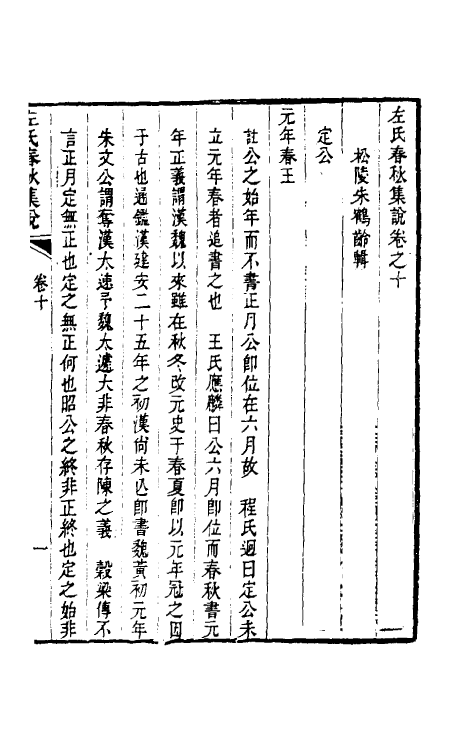 左氏春秋集說卷之十
松陵朱鶴齡輯
定公
元年春王
註公之始年而不書正月公卽位在六月故　程氏迥曰定公未
立元年春者追書之也　王氏應麟曰公六月卽位而春秋書元
年正義謂漢魏以來雖在秋冬改元史于春夏卽以元年冠之因
于古也通鑑漢建安二十五年之初漢尙未亾卽書魏黃初元年
朱文公謂奪漢太速予魏太遽大非春秋存陳之義　穀梁傳不
言正月定無正也定之無正何也昭公之終非正終也定之始非
左氏春秋集說
卷十
一